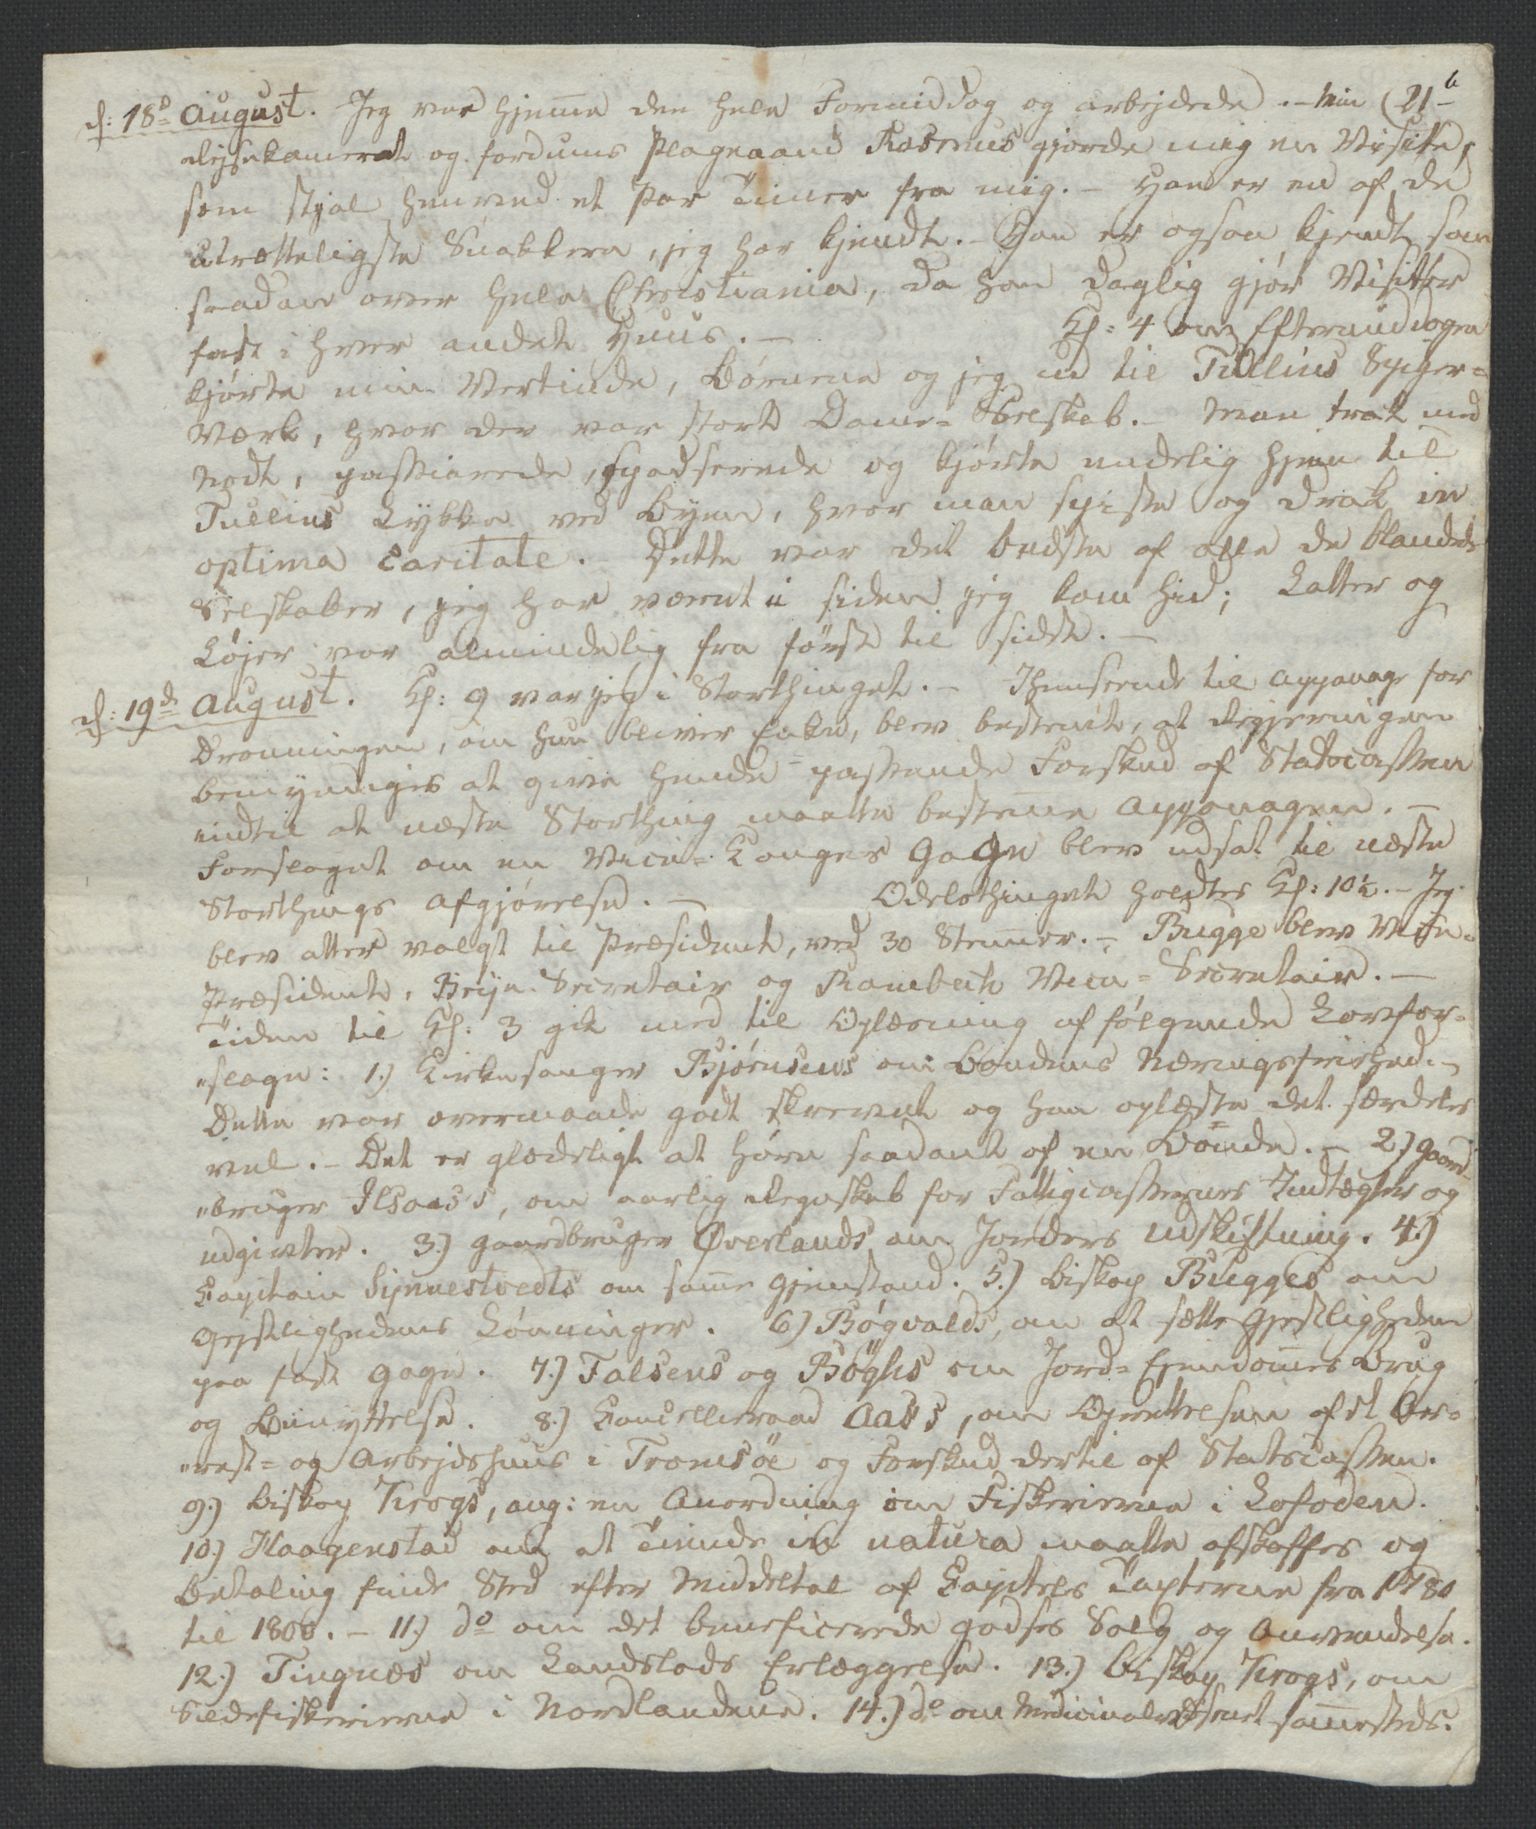 d: 18d August. Jeg var hjemme den hele Formiddag og arbejdede. – Min (21 b
Rejsekamerat og fordums Plageaand Rasmus gjorde mig en Visite,
som stjal henved et Par Timer fra mig. – Han er en af de
utrætteligste Snakkere, jeg har kjendt. – Han er ogsaa kjendt som
saadan over hele Christiania, da han daglig gjør Visitter
fast i hver andet Huus. – Kl: 4 om Eftermiddagen
kjørte min Vertinde, Børnene og jeg ud til Tullins Spiger-
Værk, hvor der var stort Dame-Selskab. – Man trak med
Nodt, passiarede, spadserede og kjørte endelig hjem til
Tullins Løkke ved Byen, hvor man spiste og drak in
optima caritate. Dette var det bedste af alle de blandede
Selskaber, jeg har været i siden jeg kom hid; Latter og
Løjer var almindelig fra først til sidst. –
d: 19de August. Kl: 9 var jeg i Storthinget. – Ihenseende til Appanage for
Dronningen, om hun bliver Enke, blev bestemt, at Regjeringen
bemyndiges at give hende passende Forskud af Statscassen
indtil at næste Storthing maatte bestemme Appanagen. –
Forslaget om en Vice-Konges Gage blev udsat til næste
Storthings Afgjørelse. – Odelsthinget holdtes Kl: 10½. – Jeg
blev atter valgt til Præsident, ved 30 Stemmer. – Bugge blev Vice-
Præsident, Bryn Secretair og Rambech Vice-Secretair. –
Tiden til Kl: 3 gik med til Oplæsning af følgende Lovfor-
„slage: 1.) Kirkesanger Bjørnsens om Bondens Næringsfrihed. –
Dette var overmaade godt skrevet og han oplæste det særdeles
vel. – Det er glædeligt at høre saadant af en Bonde. – 2) Gaard-
„bruger Ilsaas's, om aarlig Regnskab for Fattigcassernes Indtægter og
Udgivter. 3.) Gaardbruger Øverlands om Jorders Udskiftning. 4.)
Capitain Synnestvedts om samme Gjenstand. 5.) Biskop Bugges om
Gejstlighedens Lønninger. 6) Bøgvalds, om at sætte Gjestligheden
paa fast Gage. 7.) Falsens og Bøghs om Jord-Ejendommes Brug
og Benyttelse. 8.) Cancelliraad Aass's, om Oprettelsen af et Ar-
„rest- og Arbejdshuus i Tromsöe og Forskud dertil af Statscassen.
9.) Biskop Krogs, ang: en Anordning om Fiskerierne i Lofoden.
10) Haagenstad om at Tiende in natura maatte afskaffes og
Betaling finde Sted efter Middeltal af Capitels Taxterne fra 1780
til 1806. – 11.) do om det beneficerede Godses Salg og Anvendelse.
12.) Tingnæs om Landslods Erlæggelse. 13.) Biskop Krogs, om
Sildefiskerierne i Nordlandene. 14.) do om Medicinalvæsenet sammesteds.